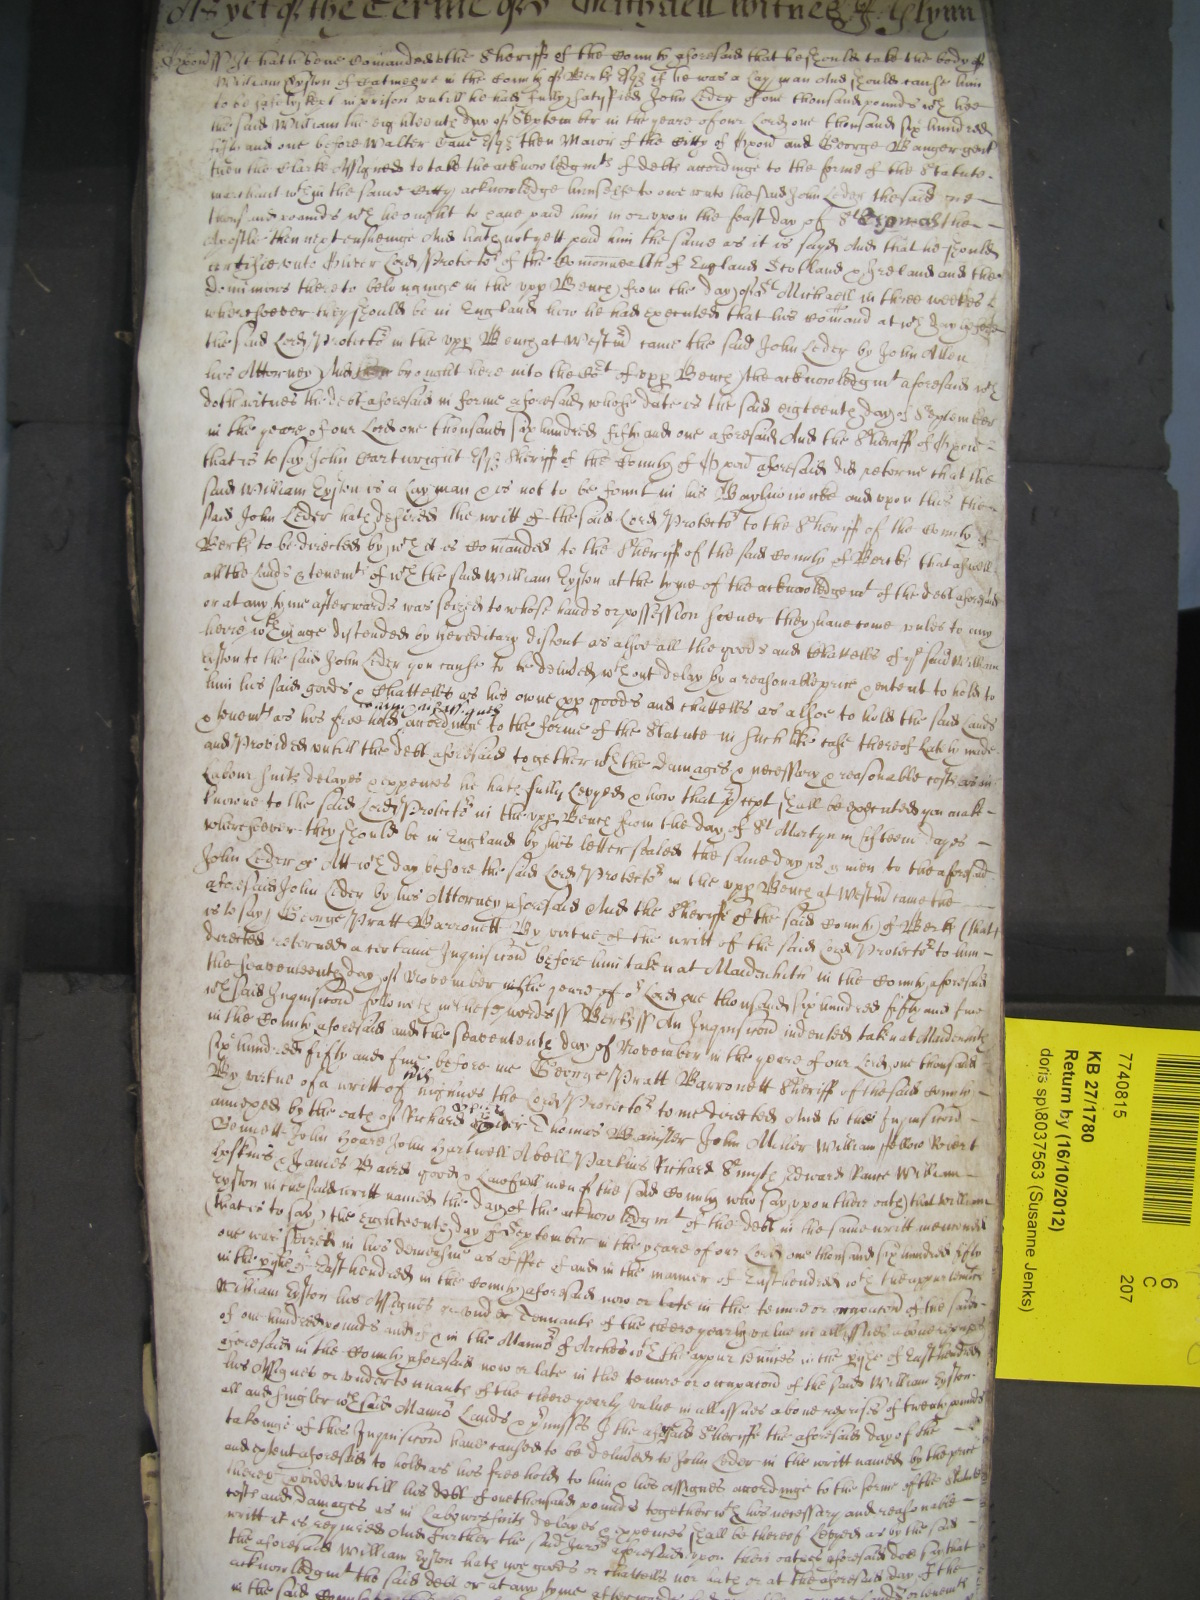 As yet of the Terme of St Michaell Witnes J Glynn
Oxon ss It hath bene Comanded the Sheriff of the County aforesaid that he should take the body of
William Eyston of Catmeere in the County of Berks Esqr if he was a Lay man And should cause him
to be safely kept in prison untill he had fully satysfied John Leder of one thousand pounds wch hee
the said William the eighteenth day of September in the yeare of our Lord one thousand six hundred
fifty and one before Walter Cave Esqr then Maior of the Citty of Oxon and George Wanger gent
then the Clarke Assigned to take the acknowledgmts of debts accordinge to the forme of the Statute
merchant wthin the same Citty acknowledge himselfe to owe unto the said John Leder the said one
thousand pounds wch he ought to have paid him in or upon the feast day of St Thomas the
Apostle then next ensueinge And hath not yett paid him the same as it is sayd And that he should
certifie unto Oliver Lord Protector of the Comonwealth of England Scotland & Ireland and the
Dominions thereto belonginge in the upp Bench from the day of St Michaell in three weekes
wheresoever they should be in England how he had executed that his Comand at wch day before
the said Lord Protector in the upp Bench at Westm came the said John Leder by John Allen
his Attorney And brought here into the Cort of upp Bench the acknowledgmt aforesaid wch
doth witnes the debt aforesaid in forme aforesaid whose date is the said eighteenth day of September
in the yeare of our Lord one thousand six hundred fifty and one aforesaid And the Sheriff of Oxon
that is to say John Cartwright Esqr Sheriff of the County of Oxon aforesaid did retorne that the
said William Eyston is a Lay man & is not to be fount in his Baylywicke and upon this the
said John Leder hath desired the writt of the said Lord Protector to the Sheriff of the County of
Berks to be directed by wch it is Comanded to the Sheriff of the said County of Berks that aswell
all the Lands & tenemts of wch the said William Eyston at the tyme of the acknowledgemt of the debt aforesaid
or at any tyme afterwards was seized to whose hands or possession soever they have come unles to any
heire wthin age distended by hereditary discent as alsoe all the goods and Chattells of ye said William
Eyston to the said John Leder you cause to be delivred wthout delay by a reasonable price & extent to hold to
him his said goods & Chattells as his owne pp goods and chattells as alsoe to hold the said Lands
& tenemts as his free hold accordinge to the forme of the Statute in such like case thereof lately made
and Provided untill the debt aforesaid together wth the damages & necessary & reasonable costs as in
Labour suits delayes & expences he hath fully Levyed & how that pcept shall be executed you make
knowne to the said Lord Protector in the upp Bench from the day of St Martyn in fifteen dayes
wheresoever they should be in England by his letter sealed the same day is given to the aforesaid
John Leder &c Att wch day before the said Lord Protector in the upp Bench at Westm came the
aforesaid John Leder by his Attorney aforesaid And the Sheriff of the said County of Berk (that
is to say) George Pratt Barronett By virtue of the writt of the said Lord Protector to him
directed retorned a certaine Inquisicon before him taken at Maidenhith in the County aforesaid
the seaventeenth day of November in the yeare of or Lord one thousand six hundred fifty and five
wch said Inquisicon followeth in these words ss Berks ss An Inquisicon indented taken at Maidenhith
in the County aforesaid and the seavententh day of November in the yeare of our Lord one thousand
six hundred fifty and five before me George Pratt Barronett Sheriff of the said County
By virtue of a writt of the Lord Protector to me directed And to this Inquisicon
annexed by the oath of Richard Thomas Banister John Miller William fellow Robert
Bennett John Hoare John Hartwell Abell Parkins Richard Smyth Edward Pance William
Erskins & James Baird good & Lawfull men of the said County who say upon their oath that William
Eyston in the said writt named the day of the acknowledgmt of the debt in the same writt menconed
(that is to say) the Eighteenth day of September in the yeare of our Lord one thousand six hundred fifty
one was seized in his demesne as of fee of and in the mannor of East hendred wth the appurtences
in the pishe of East hendred in the County aforesaid now or late in the tenure or occupacon of the said
William Eyston his Assignes or under Tennants of the cleere yearly value in all issues above reprises
of one hundred pounds and of & in the Mannor of Arches wth the appurtences in the pishe of East hendred
aforesaid in the County aforesaid now or late in the tenure or occupacon of the said William Eyston
his Assignes or undertennants of the cleere yearly value in all issues above reprises of twenty pounds
all and singler wch said Mannors Lands & pmisses I the aforesaid Sheriffe the aforesaid day of the
takeinge of this Inquisicon have caused to be delivred to John Leder in the writt named by the price
and extent aforesaid to hold as his free hold to him & his assignes accordinge to the forme of the Statute
thereof pvided untill his debt of one thousand pounds together wth his necessary and reasonable
costs and damages as in Labours suits delayes & expences shall be thereof Levyed as by the said
writt it is required And further the said Jurors aforesaid upon their oathes aforesaid doe say that
the aforesaid William Eyston hath noe goods or chattells nor hath or at the aforesaid day of the
acknowledgmt the said debt or at any tyme afterwards had
in the said County
7740815
KB 27/1780
Return by (16/10/2012)
doris sp\8037563 (Susanne Jenks)
6
C
207